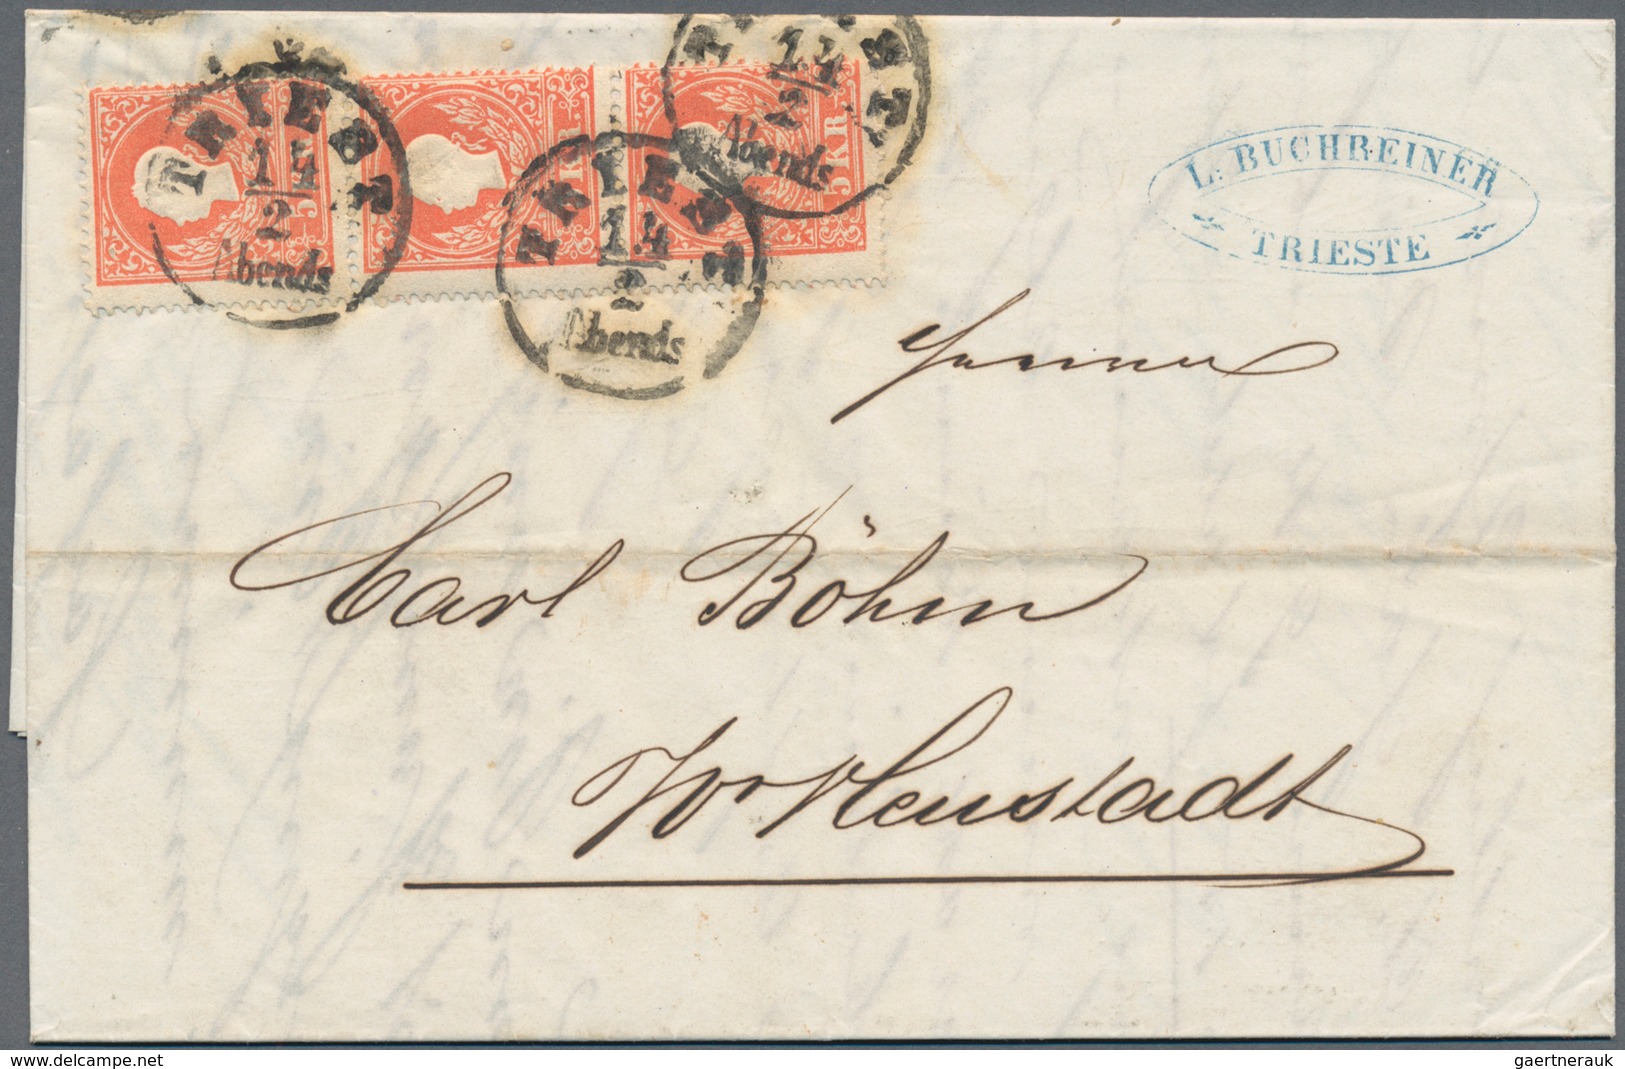 TRIEST
14
2
Abends
TRIEST
14
2
Abends
TRIEST
14
2
Abends
5 KR
5 KR.
5 KR
L. BUCHREINER
TRIESTE
Carl Böhm
Wr Neustadt
delcampe.net
gaertnerauk